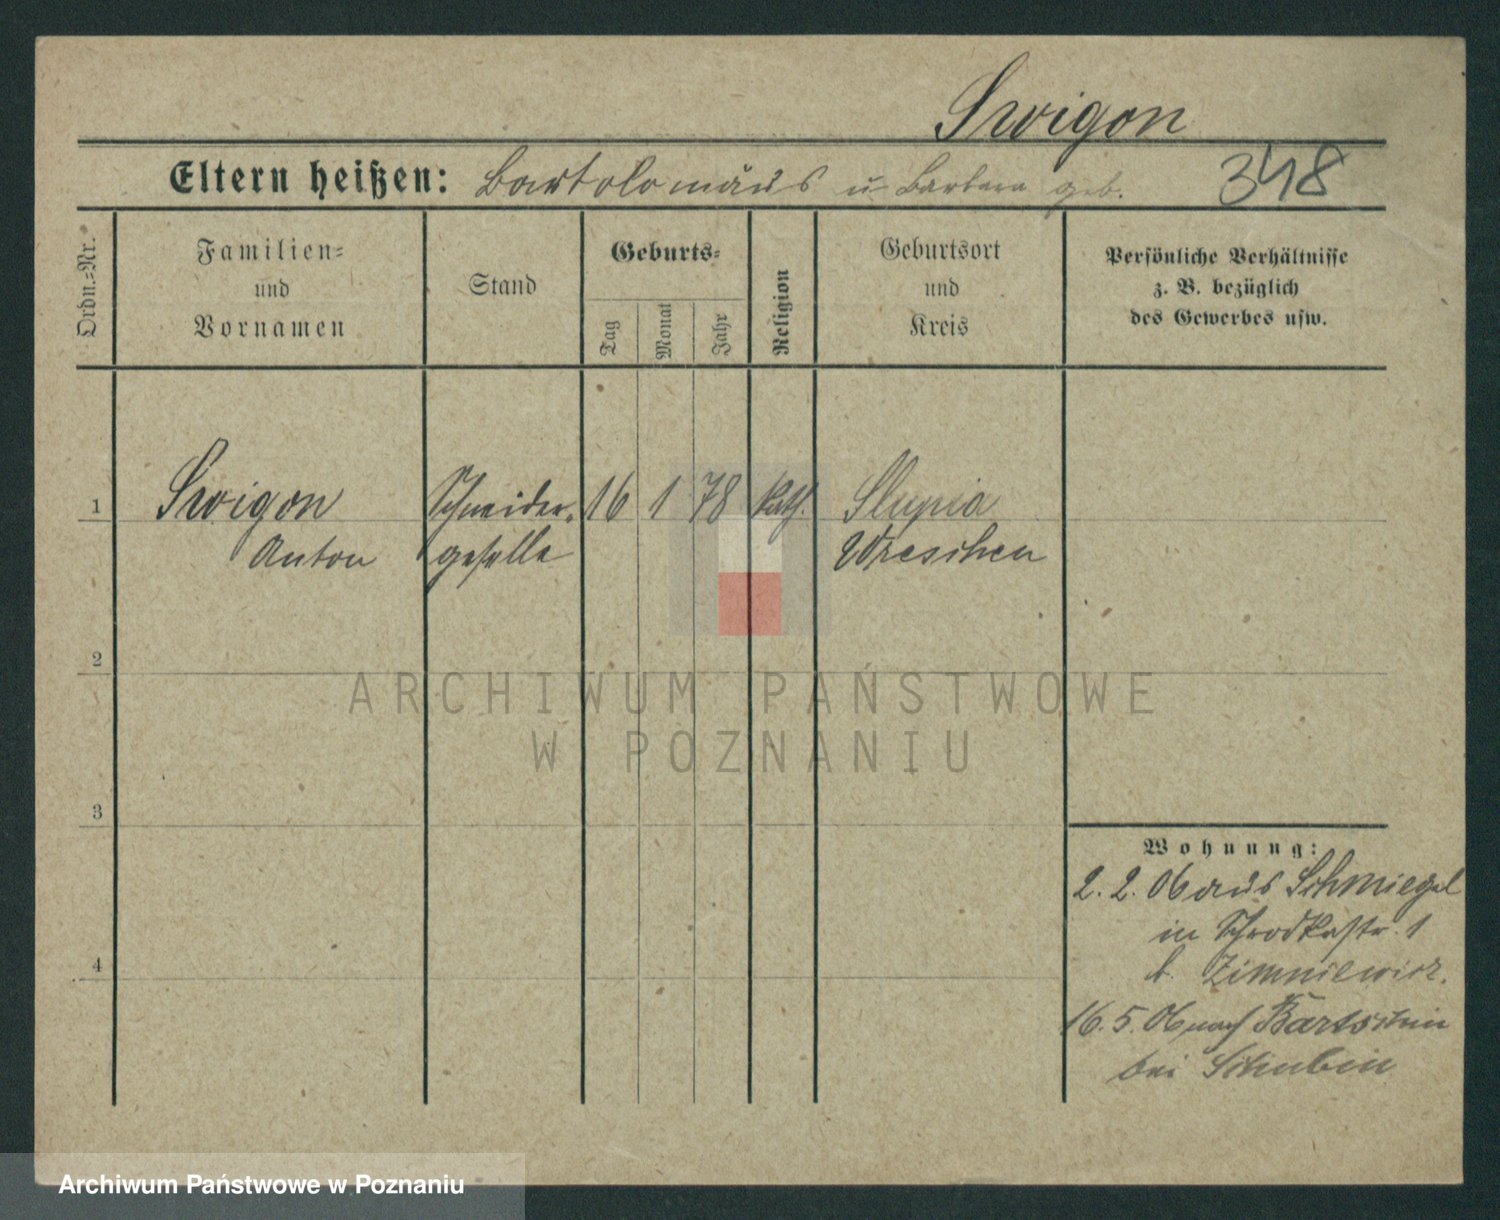 Swigon
Eltern heißen: Bartolomäus u Barbara geb. 348
Ordn.=Nr.
Familien=
und
Vornamen
Stand
Geburts=
Tag
Monat
Jahr
Religion
Geburtsort
und
Kreis
Persönliche Verhältnisse
z. B. bezüglich
des Gewerbes usw.
1 Swigon Schneider- 16 1 78 kath. Slupia
Anton geselle Wreschen
2
3
4
Wohnung:
2. 2. 06 aus Schmiegel
in Schrodkastr. 1
b. Zimniewicz.
16. 5. 06 nach
bei Schubin
ARCHIWUM PAŃSTWOWE
W POZNANIU
Archiwum Państwowe w Poznaniu